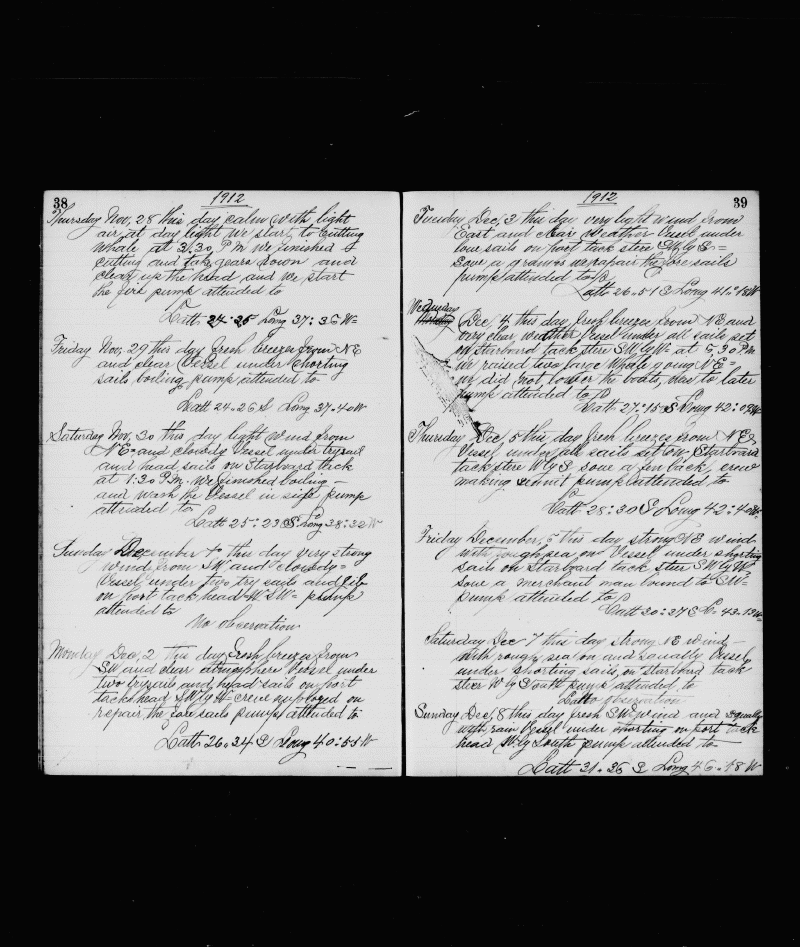 38
1912
Thursday Nov, 28 this day calm with light
air, at day light we start to cutting
whale at 3.30 P M we finished
cutting and take gears down and
clear up the head and we start
the fire pump attended to
Latt 24:25 Long 37:36 W=
Friday Nov, 29 this day fresh breezes from NE
and clear Vessel under shorting
sails boiling pump attended to
Latt 24.26 S Long 37.40W
Saturday Nov, 30 this day light wind from
NE and cloudy Vessel under trysail
and head sails on starboard tack
at 1:30 P.M. We finished boiling
and wash the Vessel in side pump
attended to
Latt 25:23 S Long 38:32 W
Sunday December 1 this day very strong
wind from SW and cloudy=
Vessel under two try sails and jib
on port tack head W SW= pump
attended to
No observation
Monday Dec, 2 this day fresh breezes from
SW and clear atmosphere Vessel under
two trysails and head sails on port
tack head SW by W= crew employed on
repair the fore sails pump attended to
Latt 26.34 S Long 40:55 W
39
1912
Tuesday Dec, 3 this day very light wind from
East and clear weather Vessel under
low sails on port tack stere SW by S=
repair the fore sails
pump attended to
Latt 26.51 S Long 41.18W
Wednesday
Dec, 4 this day fresh breezes from NE and
very clear weather Vessel under all sails set
on starboard tack stere SW by W= at 5,30 P.M
we raised two large Whale going NE
we did not lower the boats, to later
pump attended to
Latt 27:15 S Long 42:09W
Thursday Dec 5 this day fresh breezes from NE
Vessel under all sails set on Starboard
tack stere W by S sove a fin back, crew
making pump attended to
Latt 28:30 S Long 42:40W
Friday December, 5 this day strong NE wind
with rough sea on Vessel under shorting
sails on starboard tack ster SW by W
sove a merchant man bound to SW=
pump attended to
Latt 30:37 S L. 43.13W
Saturday Dec 7 this day strong NE wind
with rough sea on and squally Vessel
under shorting sails, on starboard tack
steer W by South pump attended to
Latt no observation
Sunday Dec, 8 this day fresh SW wind and squally
with rain Vessel under shorting on port tack
head W. by South pump attended to
Latt 31.36 S Long 46.18 W